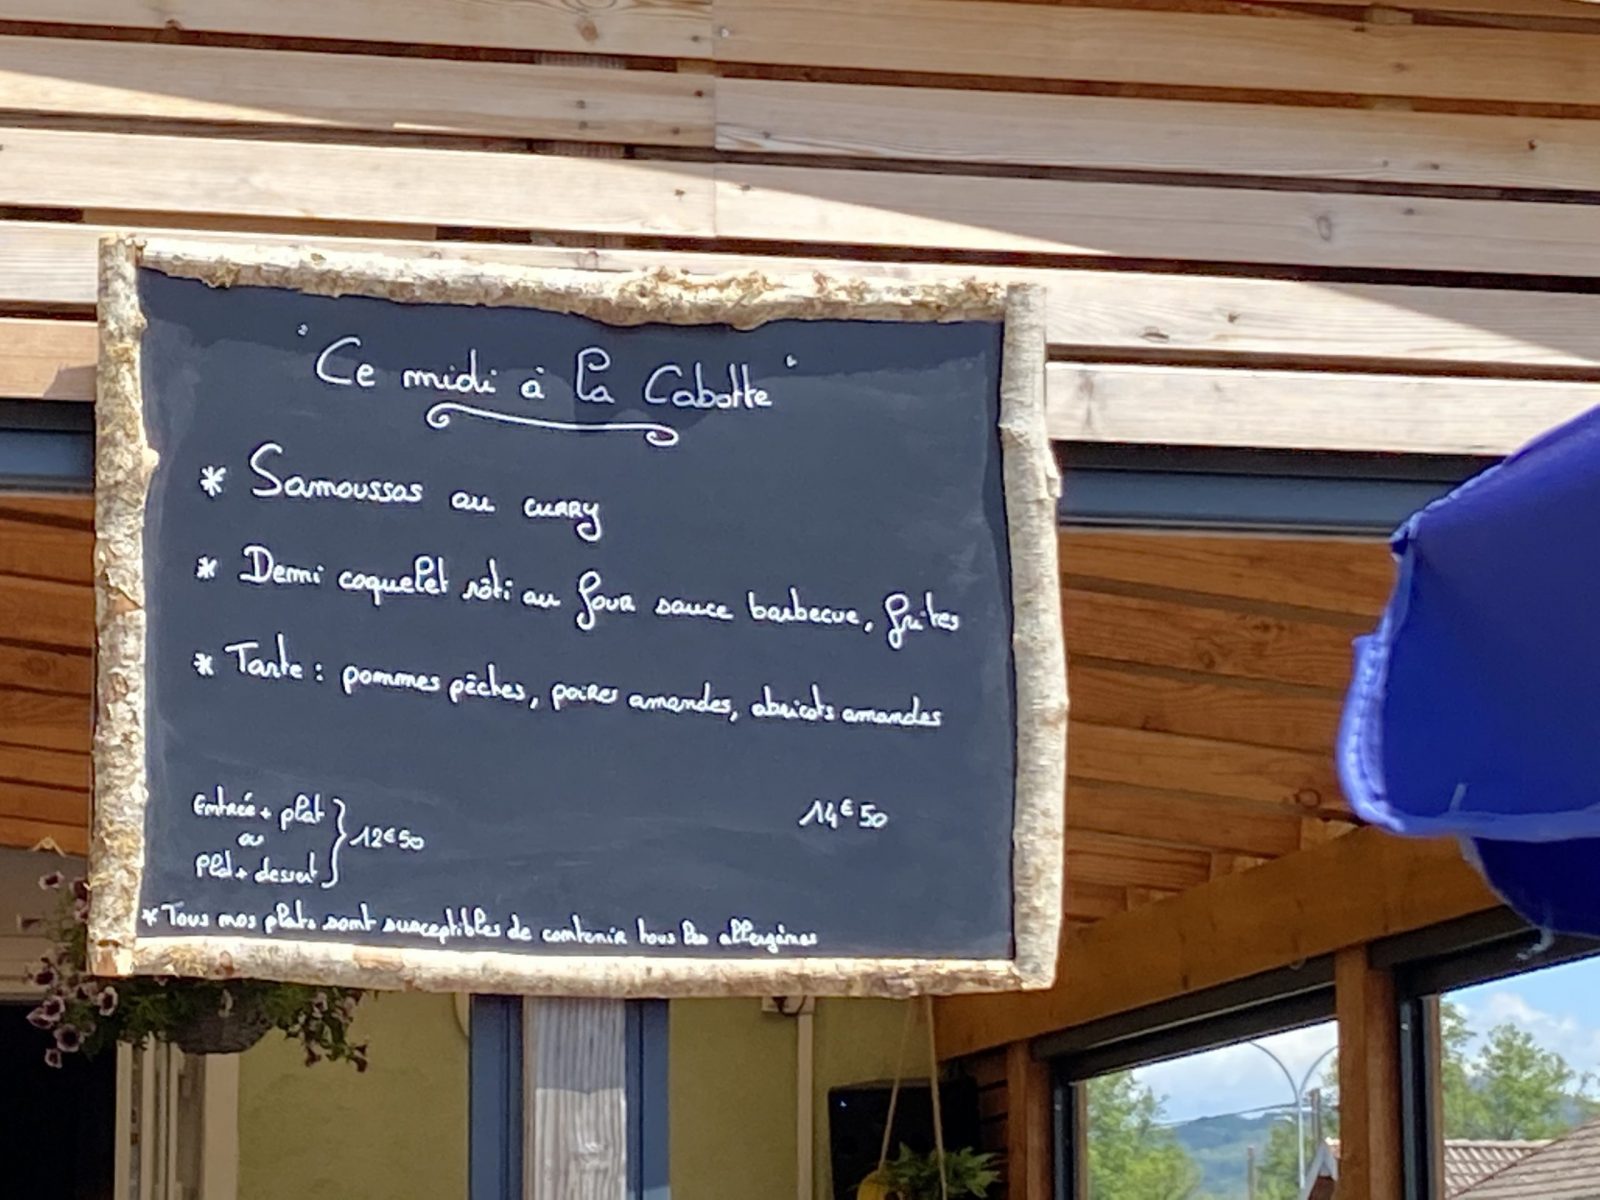 "Ce midi à la Cabotte"
* Samoussas au curry
* Demi coquelet rôti au four sauce barbecue, frites
* Tarte : pommes pêches, poires amandes, abricots amandes
Entrée + plat
ou
plat + dessert
} 12€50
14€50
* Tous mos plats sont susceptibles de contenir tous les allergènes